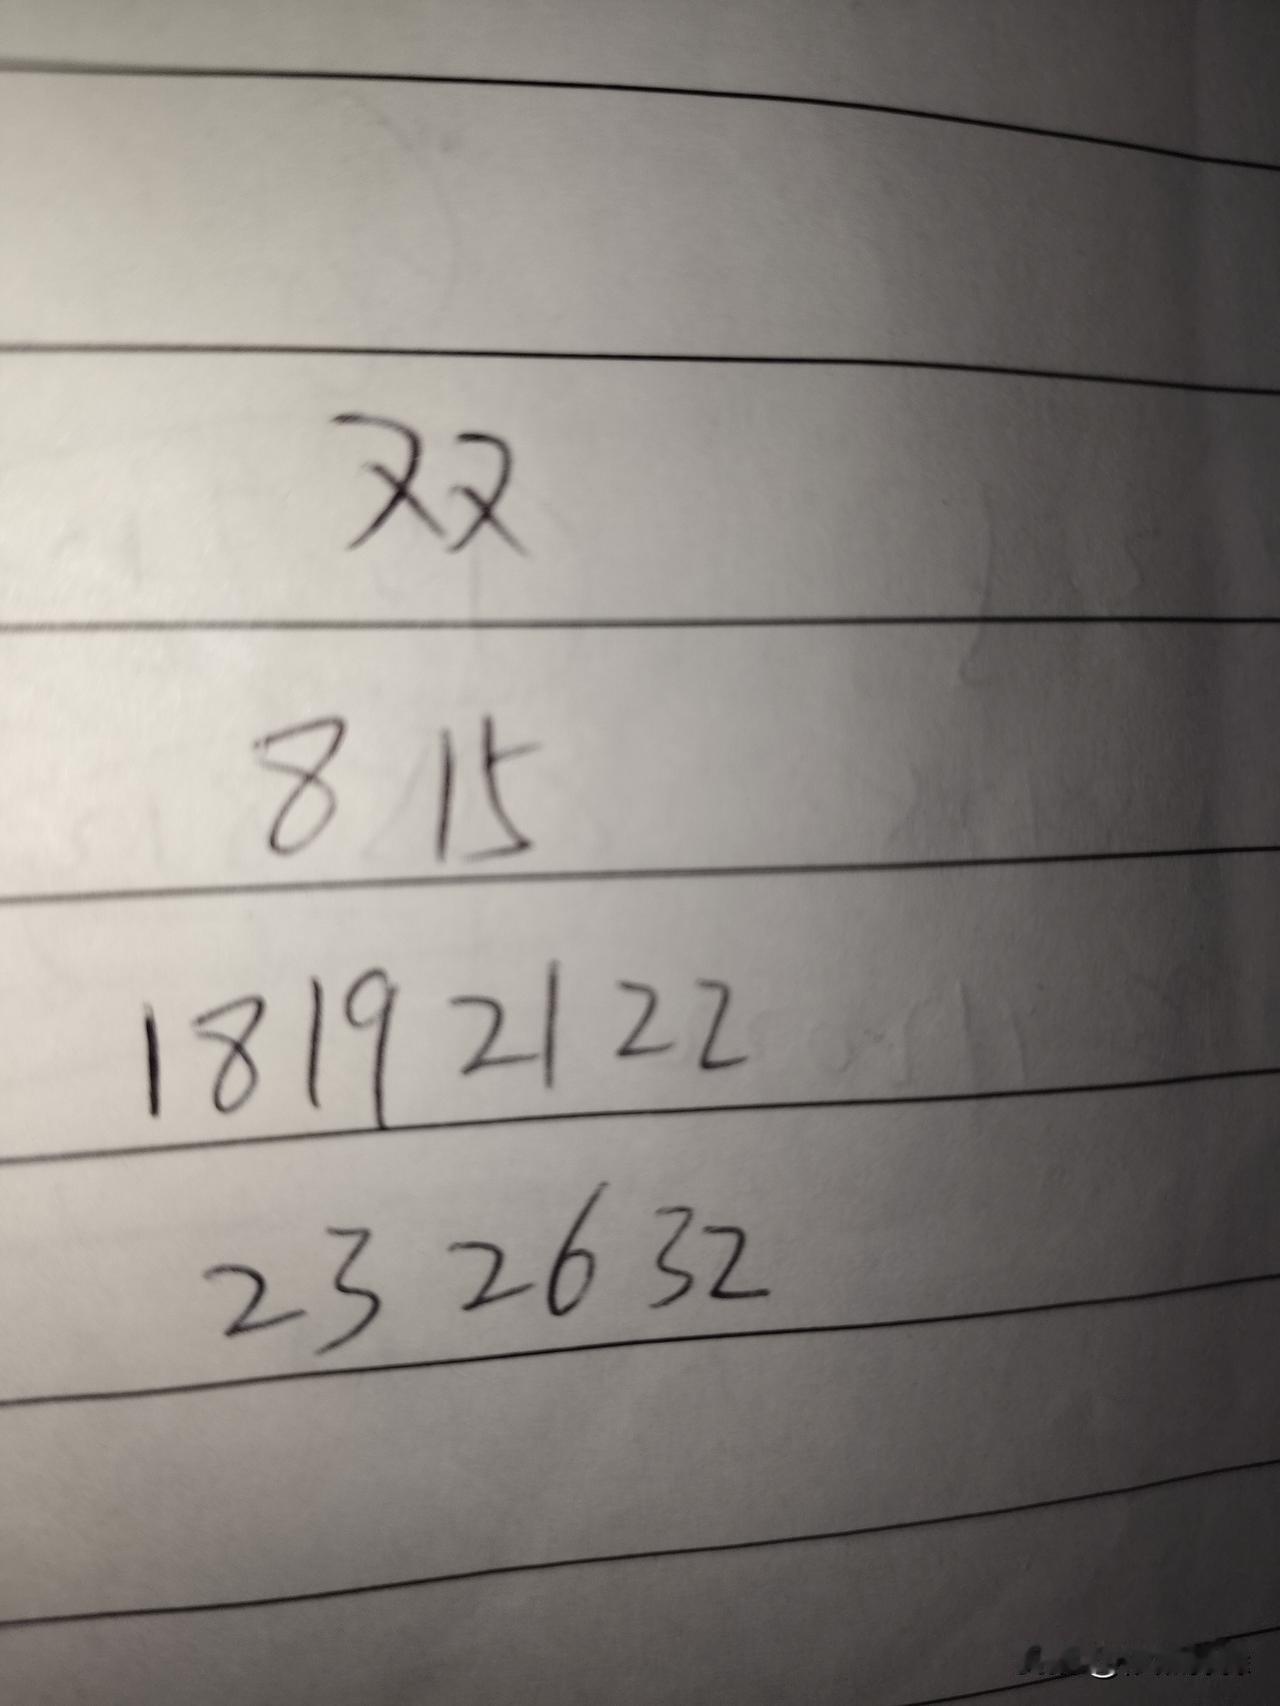 双
8 15
18 19 21 22
23 26 32